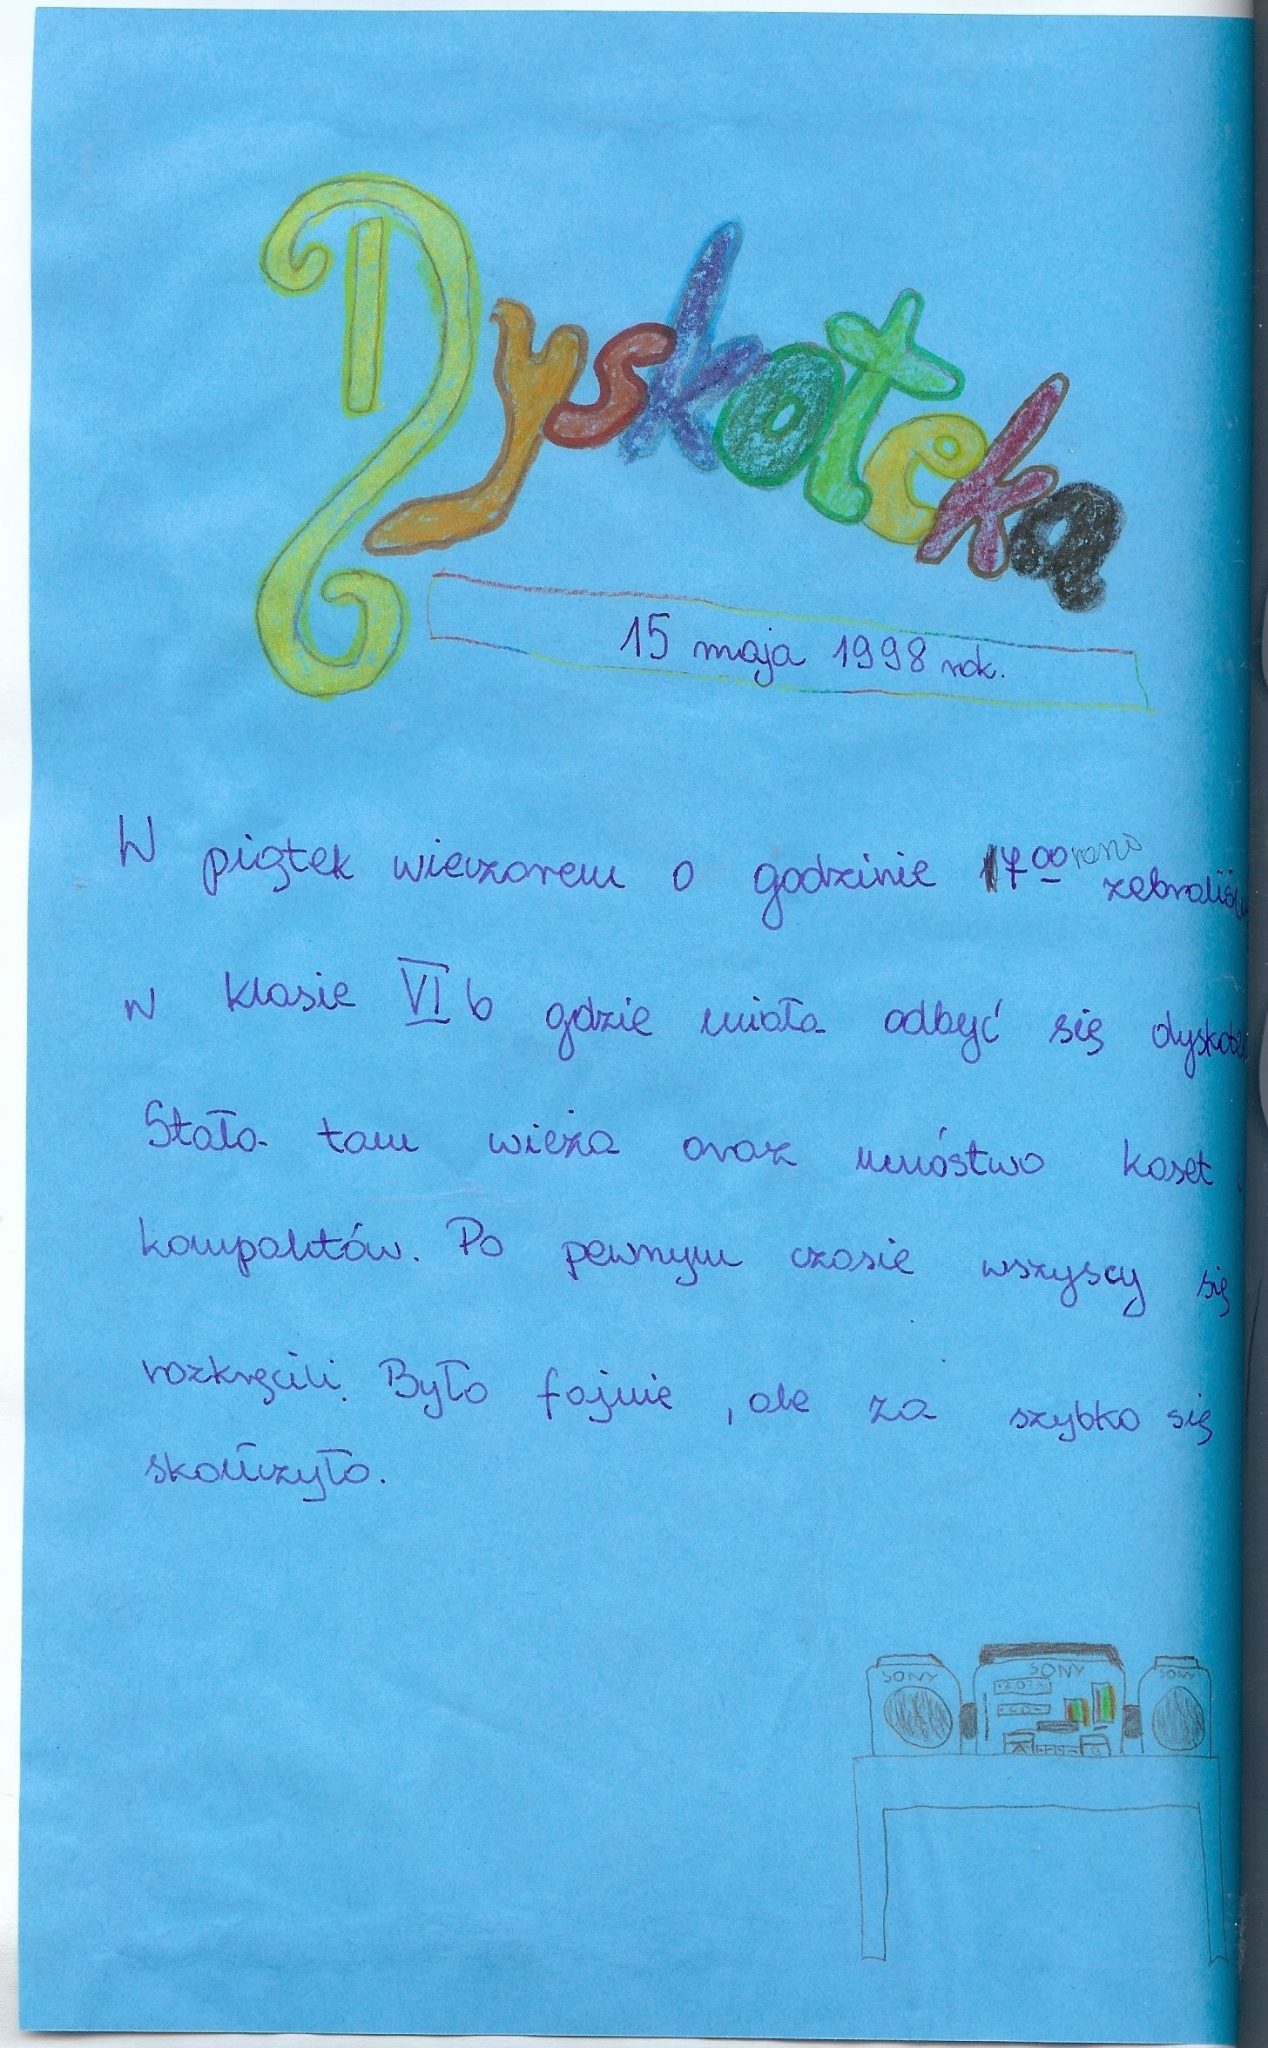 Dyskoteka
15 maja 1998 rok.
W piątek wieczorem o godzinie 17⁰⁰ rano zebraliśm
w klasie VI b gdzie miała odbyć się dyskote
Stała tam wieża oraz mnóstwo kaset
kompaktów. Po pewnym czasie wszyscy się
rozkręcili. Było fajnie, ale za szybko się
skończyło.
SONY SONY SONY